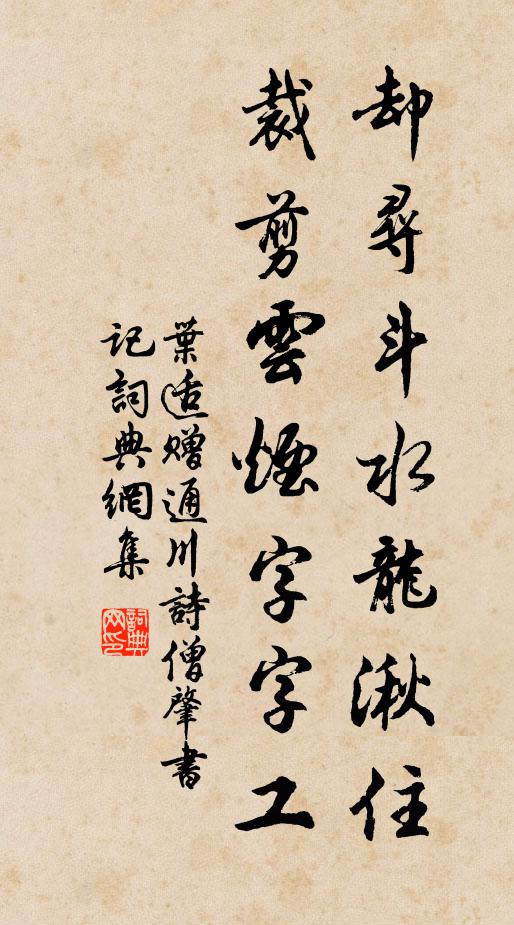 却尋斗水龍湫住
裁剪雲煙字字工
葉适贈通川詩僧肇書
記詞典網集
詞典
网印